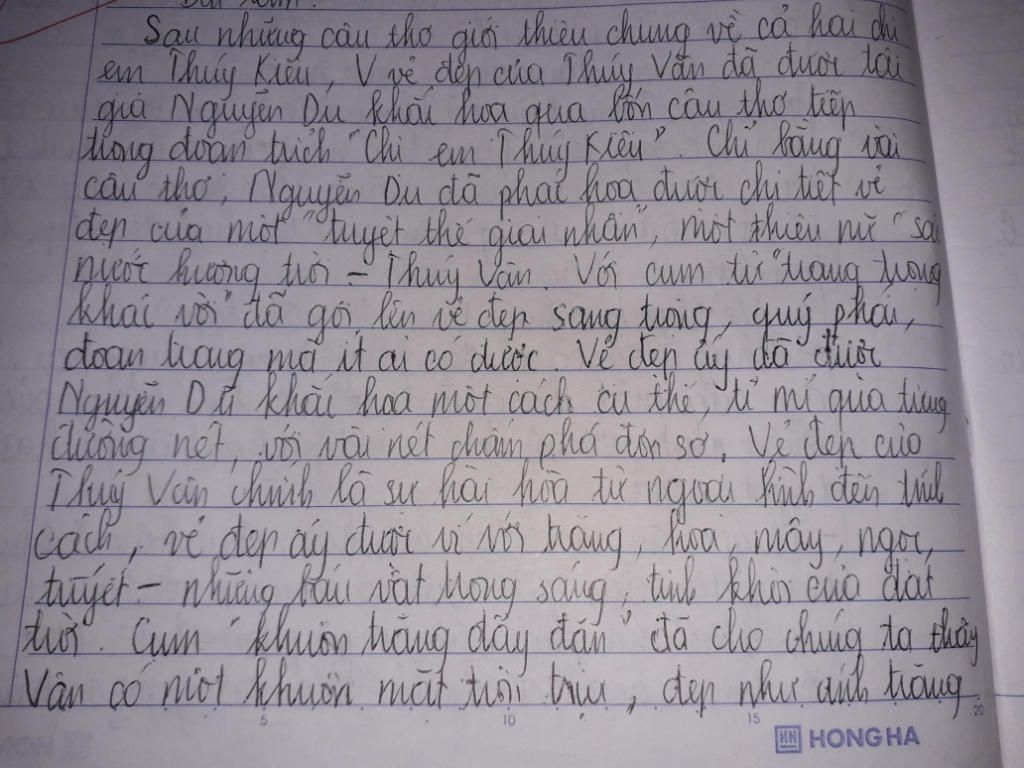 Bài làm.
Sau những câu thơ giới thiệu chung về cả hai chị
em Thúy Kiều, V vẻ đẹp của Thúy Vân đã được tác
giả Nguyễn Du khắc họa qua bốn câu thơ tiếp
trong đoạn trích "Chị em Thúy Kiều". Chỉ bằng vài
câu thơ, Nguyễn Du đã phác họa được chi tiết vẻ
đẹp của một "tuyệt thế giai nhân", một thiếu nữ "sắc
nước hương trời - Thúy Vân. Với cụm từ "trang trọng
khác vời" đã gợi lên vẻ đẹp sang trọng, quý phái,
đoan trang mà ít ai có được. Vẻ đẹp ấy đã được
Nguyễn Du khắc họa một cách cụ thể, tỉ mỉ qua từng
đường nét, với vài nét chấm phá đơn sơ. Vẻ đẹp của
Thúy Vân chính là sự hài hòa từ ngoại hình đến tính
cách, vẻ đẹp ấy được ví với trăng, hoa, mây, ngọc,
tuyết - những báu vật trong sáng, tinh khôi của đất
trời. Cụm "khuôn trăng đầy đặn" đã cho chúng ta thấy
Vân có một khuôn mặt tròi trịu, đẹp như ánh trăng
5 10 15 20
HONG HA